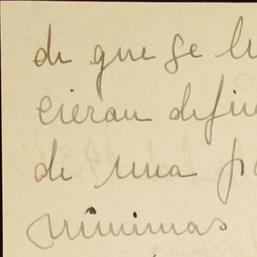 de que se hi
cieran defin
de una pa
mínimas